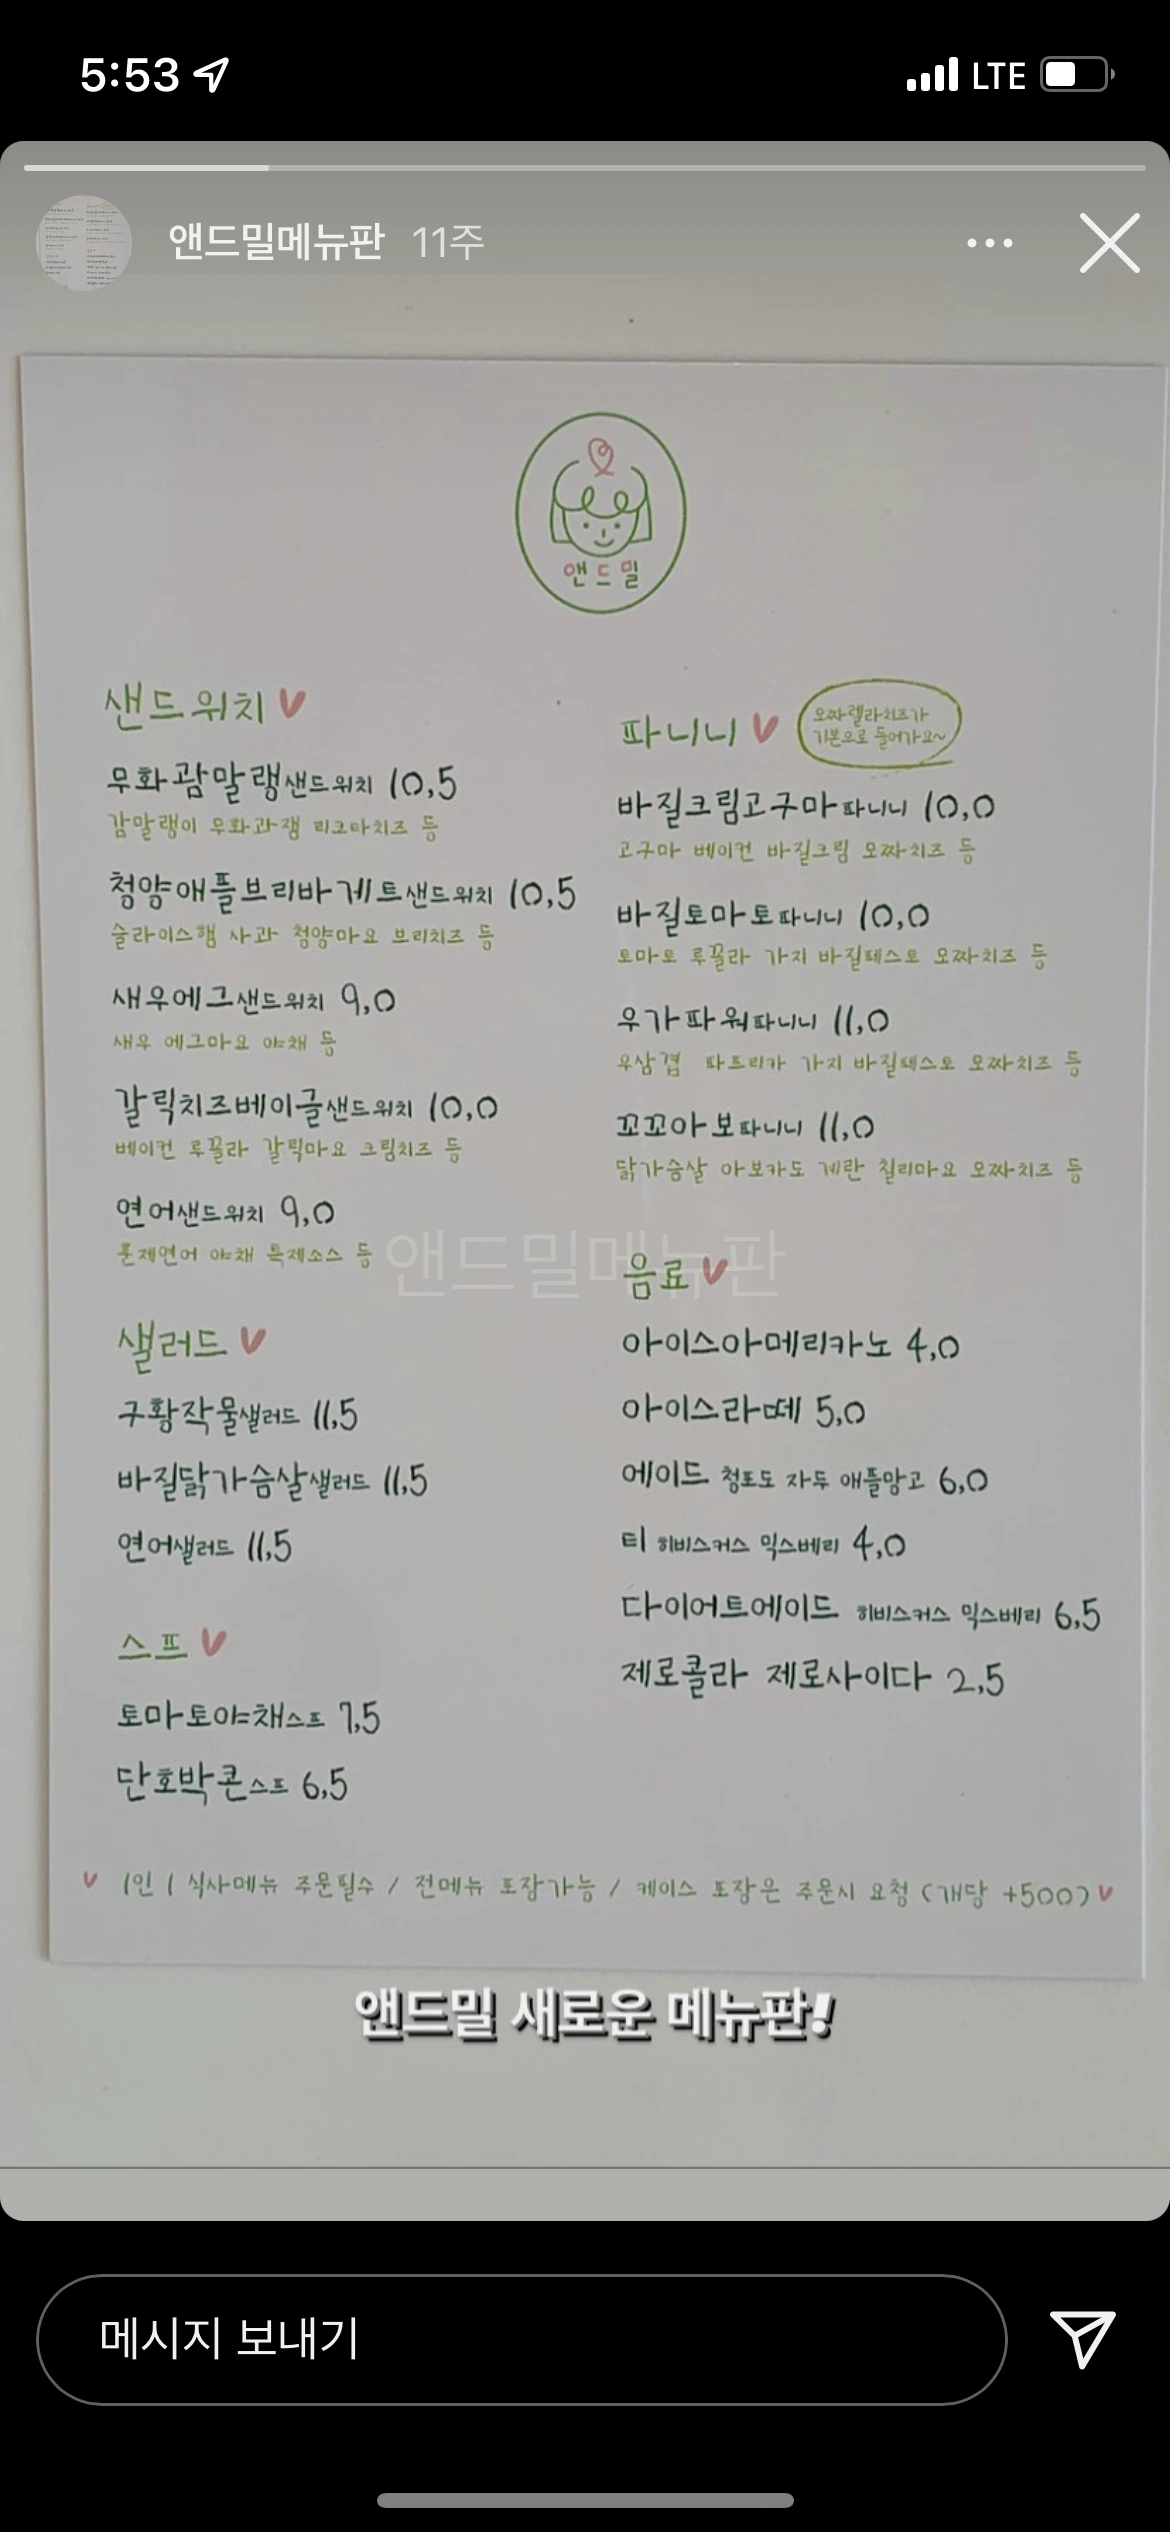 5:53
LTE
앤드밀메뉴판 11주
앤드밀
샌드위치
무화괌말랭샌드위치 10,5
감말랭이 무화과잼 리코타치즈 등
청양애플브리바게트샌드위치 10,5
슬라이스햄 사과 청양마요 브리치즈 등
새우에그샌드위치 9,0
새우 에그마요 야채 등
갈릭치즈베이글샌드위치 10,0
베이컨 루꼴라 갈릭마요 크림치즈 등
연어샌드위치 9,0
훈제연어 야채 특제소스 등
샐러드
구황작물샐러드 11,5
바질닭가슴살샐러드 11,5
연어샐러드 11,5
스프
토마토야채스프 7,5
단호박콘스프 6,5
파니니
모짜렐라치즈가
기본으로 들어가요~
바질크림고구마파니니 10,0
고구마 베이컨 바질크림 모짜치즈 등
바질토마토파니니 10,0
토마토 루꼴라 가지 바질페스토 모짜치즈 등
우가파워파니니 11,0
우삼겹 파프리카 가지 바질페스토 모짜치즈 등
꼬꼬아보파니니 11,0
닭가슴살 아보카도 계란 칠리마요 모짜치즈 등
앤드밀메뉴판
음료
아이스아메리카노 4,0
아이스라떼 5,0
에이드 청포도 자두 애플망고 6,0
티 히비스커스 믹스베리 4,0
다이어트에이드 히비스커스 믹스베리 6,5
제로콜라 제로사이다 2,5
1인 1 식사메뉴 주문필수 / 전메뉴 포장가능 / 케이스 포장은 주문시 요청 (개당 +500)
앤드밀 새로운 메뉴판!
메시지 보내기